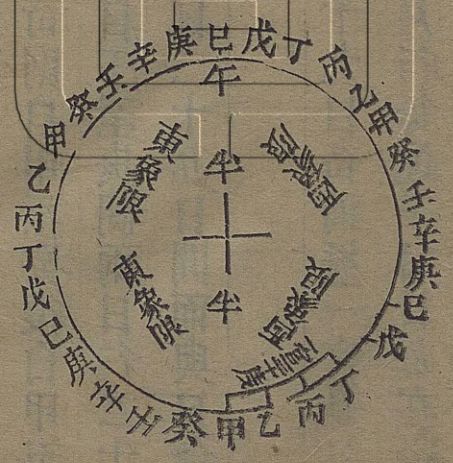 甲癸壬辛庚巳戊丁丙乙甲癸壬辛庚巳戊丁丙乙甲癸壬辛庚巳戊丁丙乙
午
東象限
半
西象限
東象限
半
西象限
宮三十度